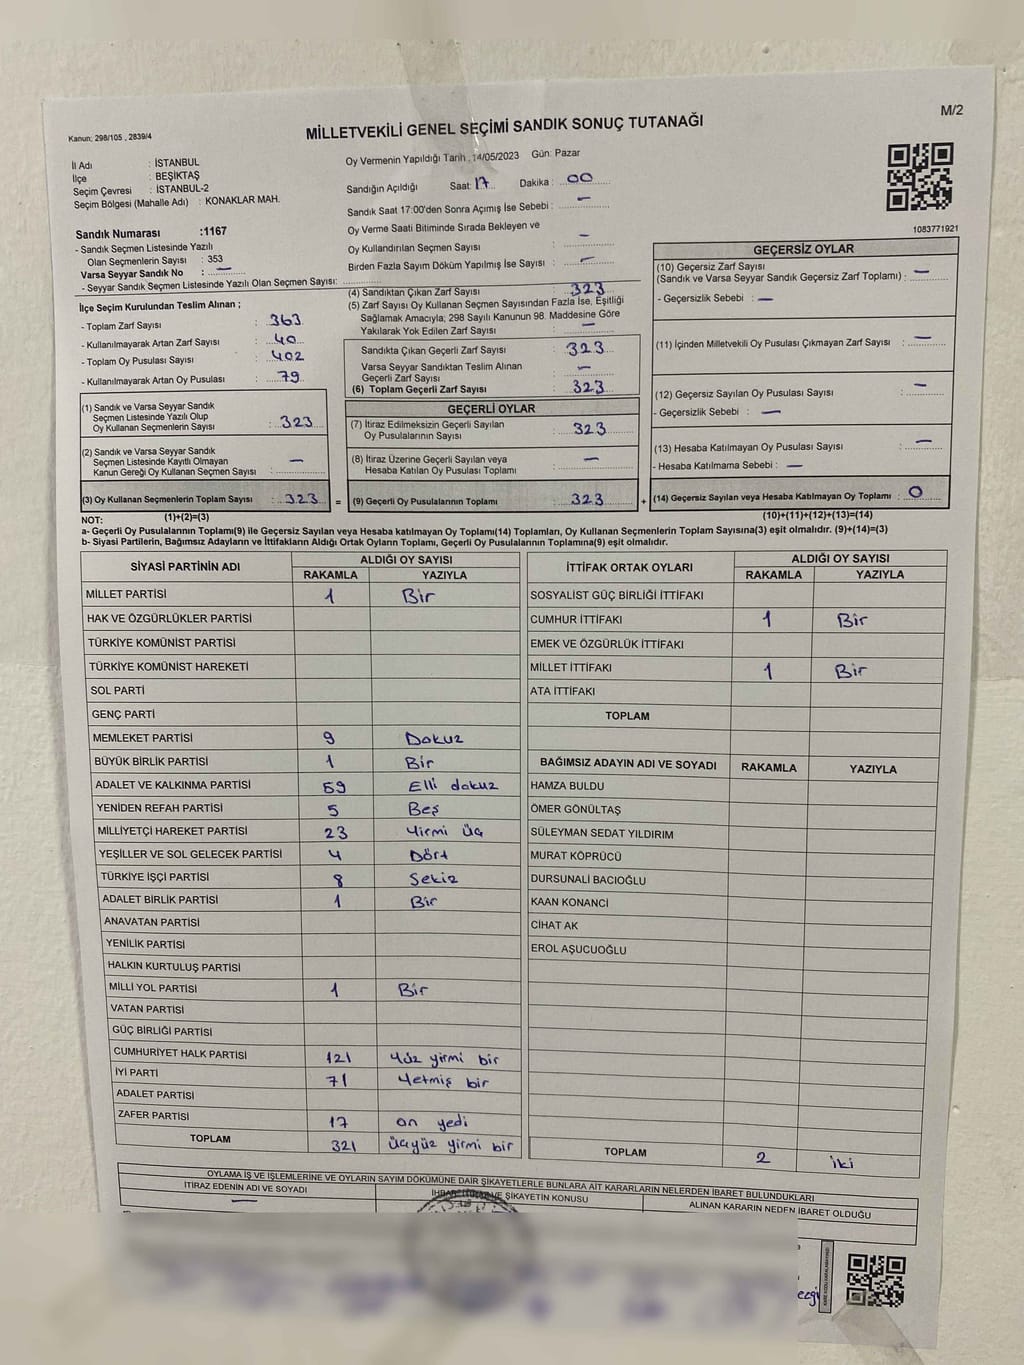 M/2
Kanun: 298/105 , 2839/4
MİLLETVEKİLİ GENEL SEÇİMİ SANDIK SONUÇ TUTANAĞI
İl Adı : İSTANBUL
İlçe : BEŞİKTAŞ
Seçim Çevresi : İSTANBUL-2
Seçim Bölgesi (Mahalle Adı) : KONAKLAR MAH.
Sandık Numarası :1167
- Sandık Seçmen Listesinde Yazılı
Olan Seçmenlerin Sayısı : 353
Varsa Seyyar Sandık No : —
- Seyyar Sandık Seçmen Listesinde Yazılı Olan Seçmen Sayısı:
İlçe Seçim Kurulundan Teslim Alınan ;
- Toplam Zarf Sayısı : 363
- Kullanılmayarak Artan Zarf Sayısı : 40
- Toplam Oy Pusulası Sayısı : 402
- Kullanılmayarak Artan Oy Pusulası : 79
(1) Sandık ve Varsa Seyyar Sandık
Seçmen Listesinde Yazılı Olup
Oy Kullanan Seçmenlerin Sayısı : 323
(2) Sandık ve Varsa Seyyar Sandık
Seçmen Listesinde Kayıtlı Olmayan —
Kanun Gereği Oy Kullanan Seçmen Sayısı :
(3) Oy Kullanan Seçmenlerin Toplam Sayısı : 323 =
(1)+(2)=(3)
Oy Vermenin Yapıldığı Tarih : 14/05/2023 Gün: Pazar
Sandığın Açıldığı Saat: 17 Dakika : 00
Sandık Saat 17:00'den Sonra Açımış İse Sebebi : —
Oy Verme Saati Bitiminde Sırada Bekleyen ve
Oy Kullandırılan Seçmen Sayısı : —
Birden Fazla Sayım Döküm Yapılmış İse Sayısı : —
(4) Sandıktan Çıkan Zarf Sayısı : 323
(5) Zarf Sayısı Oy Kullanan Seçmen Sayısından Fazla İse, Eşitliği
Sağlamak Amacıyla; 298 Sayılı Kanunun 98. Maddesine Göre
Yakılarak Yok Edilen Zarf Sayısı : —
Sandıkta Çıkan Geçerli Zarf Sayısı : 323
Varsa Seyyar Sandıktan Teslim Alınan
Geçerli Zarf Sayısı : —
(6) Toplam Geçerli Zarf Sayısı : 323
GEÇERLİ OYLAR
(7) İtiraz Edilmeksizin Geçerli Sayılan
Oy Pusulalarının Sayısı : 323
(8) İtiraz Üzerine Geçerli Sayılan veya
Hesaba Katılan Oy Pusulası Toplamı : —
(9) Geçerli Oy Pusulalarının Toplamı : 323 +
1083771921
GEÇERSİZ OYLAR
(10) Geçersiz Zarf Sayısı
(Sandık ve Varsa Seyyar Sandık Geçersiz Zarf Toplamı) : —
- Geçersizlik Sebebi : —
(11) İçinden Milletvekili Oy Pusulası Çıkmayan Zarf Sayısı : —
(12) Geçersiz Sayılan Oy Pusulası Sayısı : —
- Geçersizlik Sebebi : —
(13) Hesaba Katılmayan Oy Pusulası Sayısı : —
- Hesaba Katılmama Sebebi : —
(14) Geçersiz Sayılan veya Hesaba Katılmayan Oy Toplamı : 0
(10)+(11)+(12)+(13)=(14)
NOT:
a- Geçerli Oy Pusulalarının Toplamı(9) ile Geçersiz Sayılan veya Hesaba katılmayan Oy Toplamı(14) Toplamları, Oy Kullanan Seçmenlerin Toplam Sayısına(3) eşit olmalıdır. (9)+(14)=(3)
b- Siyasi Partilerin, Bağımsız Adayların ve İttifakların Aldığı Ortak Oyların Toplamı, Geçerli Oy Pusulalarının Toplamına(9) eşit olmalıdır.
SİYASİ PARTİNİN ADI ALDIĞI OY SAYISI
RAKAMLA YAZIYLA
MİLLET PARTİSİ 1 Bir
HAK VE ÖZGÜRLÜKLER PARTİSİ
TÜRKİYE KOMÜNİST PARTİSİ
TÜRKİYE KOMÜNİST HAREKETİ
SOL PARTİ
GENÇ PARTİ
MEMLEKET PARTİSİ 9 Dokuz
BÜYÜK BİRLİK PARTİSİ 1 Bir
ADALET VE KALKINMA PARTİSİ 59 Elli dokuz
YENİDEN REFAH PARTİSİ 5 Beş
MİLLİYETÇİ HAREKET PARTİSİ 23 Yirmi üç
YEŞİLLER VE SOL GELECEK PARTİSİ 4 Dört
TÜRKİYE İŞÇİ PARTİSİ 8 Sekiz
ADALET BİRLİK PARTİSİ 1 Bir
ANAVATAN PARTİSİ
YENİLİK PARTİSİ
HALKIN KURTULUŞ PARTİSİ
MİLLİ YOL PARTİSİ 1 Bir
VATAN PARTİSİ
GÜÇ BİRLİĞİ PARTİSİ
CUMHURİYET HALK PARTİSİ 121 Yüz yirmi bir
İYİ PARTİ 71 Yetmiş bir
ADALET PARTİSİ
ZAFER PARTİSİ 17 on yedi
TOPLAM 321 Üçyüz yirmi bir
İTTİFAK ORTAK OYLARI ALDIĞI OY SAYISI
RAKAMLA YAZIYLA
SOSYALİST GÜÇ BİRLİĞİ İTTİFAKI
CUMHUR İTTİFAKI 1 Bir
EMEK VE ÖZGÜRLÜK İTTİFAKI
MİLLET İTTİFAKI 1 Bir
ATA İTTİFAKI
TOPLAM
BAĞIMSIZ ADAYIN ADI VE SOYADI RAKAMLA YAZIYLA
HAMZA BULDU
ÖMER GÖNÜLTAŞ
SÜLEYMAN SEDAT YILDIRIM
MURAT KÖPRÜCÜ
DURSUNALİ BACIOĞLU
KAAN KONANCİ
CİHAT AK
EROL AŞUCUOĞLU
TOPLAM 2 iki
OYLAMA İŞ VE İŞLEMLERİNE VE OYLARIN SAYIM DÖKÜMÜNE DAİR ŞİKAYETLERLE BUNLARA AİT KARARLARIN NELERDEN İBARET BULUNDUKLARI
İTİRAZ EDENİN ADI VE SOYADI VE ŞİKAYETİN KONUSU ALINAN KARARIN NEDEN İBARET OLDUĞU
—